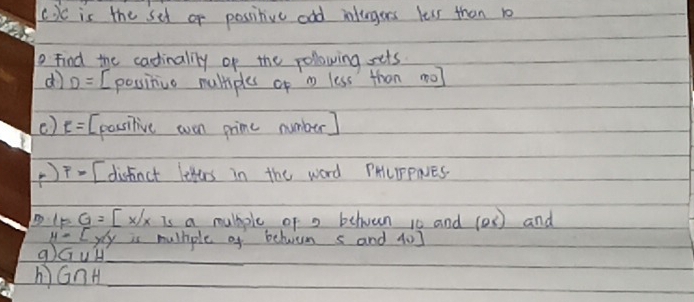 c. C is the set of possitive odd intergers less than 10
Find the cardinality of the following sets.
d) D = [possitive multiples of less than
e) E = [possitive even prime number]
F = [distinct letters in the word PHILIPPINES
If G = [x/x is a multiple of between 10 and and
H = [y/y is multiple of between 5 and 40]
g) G ∪ H
h) G ∩ H